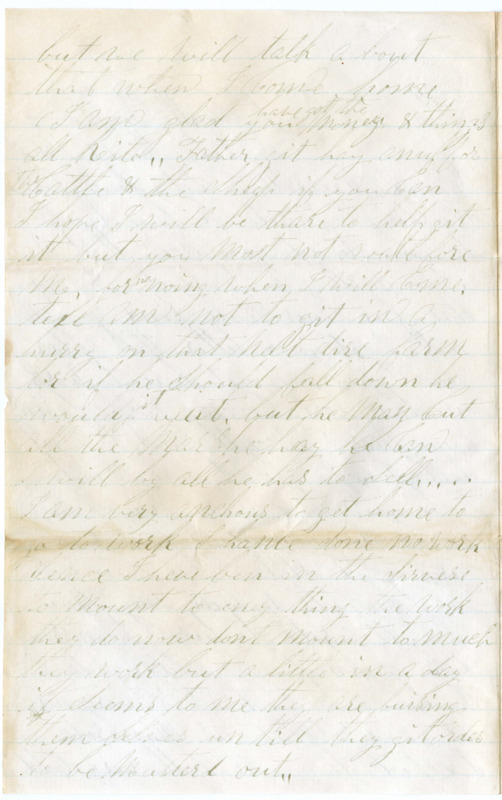 but we will talk a bout
that when I come home
I am glad you have got the money & things
all rite,, Father git hay anuf for
cattle & the if you can
I hope I will be thare to help git
it but you most not
me, for no noing when I will come.
tell im not to git in a
hurry on that farm
for if he should fall down he
would it but he may cut
all the hay he can
I will by all he has to sell....
I am very anchous to get home to
go to work I hante done no work
sence I have ben in the
to mount to any thing the work
they do now dont mount to much
they work but a little in a day
it seems to me they are
them selves un till they git orders
to be musterd out,,